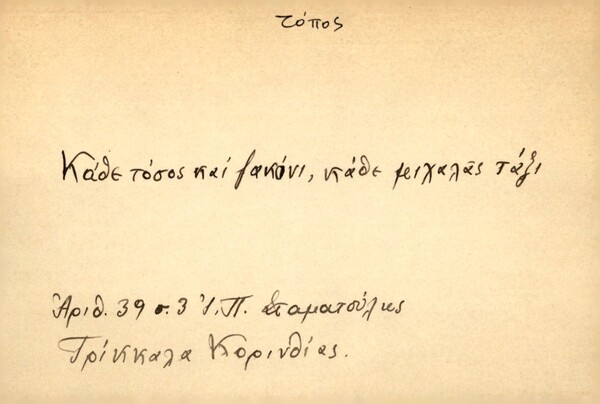 τόπος
Κάθε τόπος καί ζακόνι, κάθε μαχαλᾶς τάξι
Ἀριθ. 39 σ. 3 Ἰ. Π. Σταματούλης
Τρίκκαλα Κορινθίας.